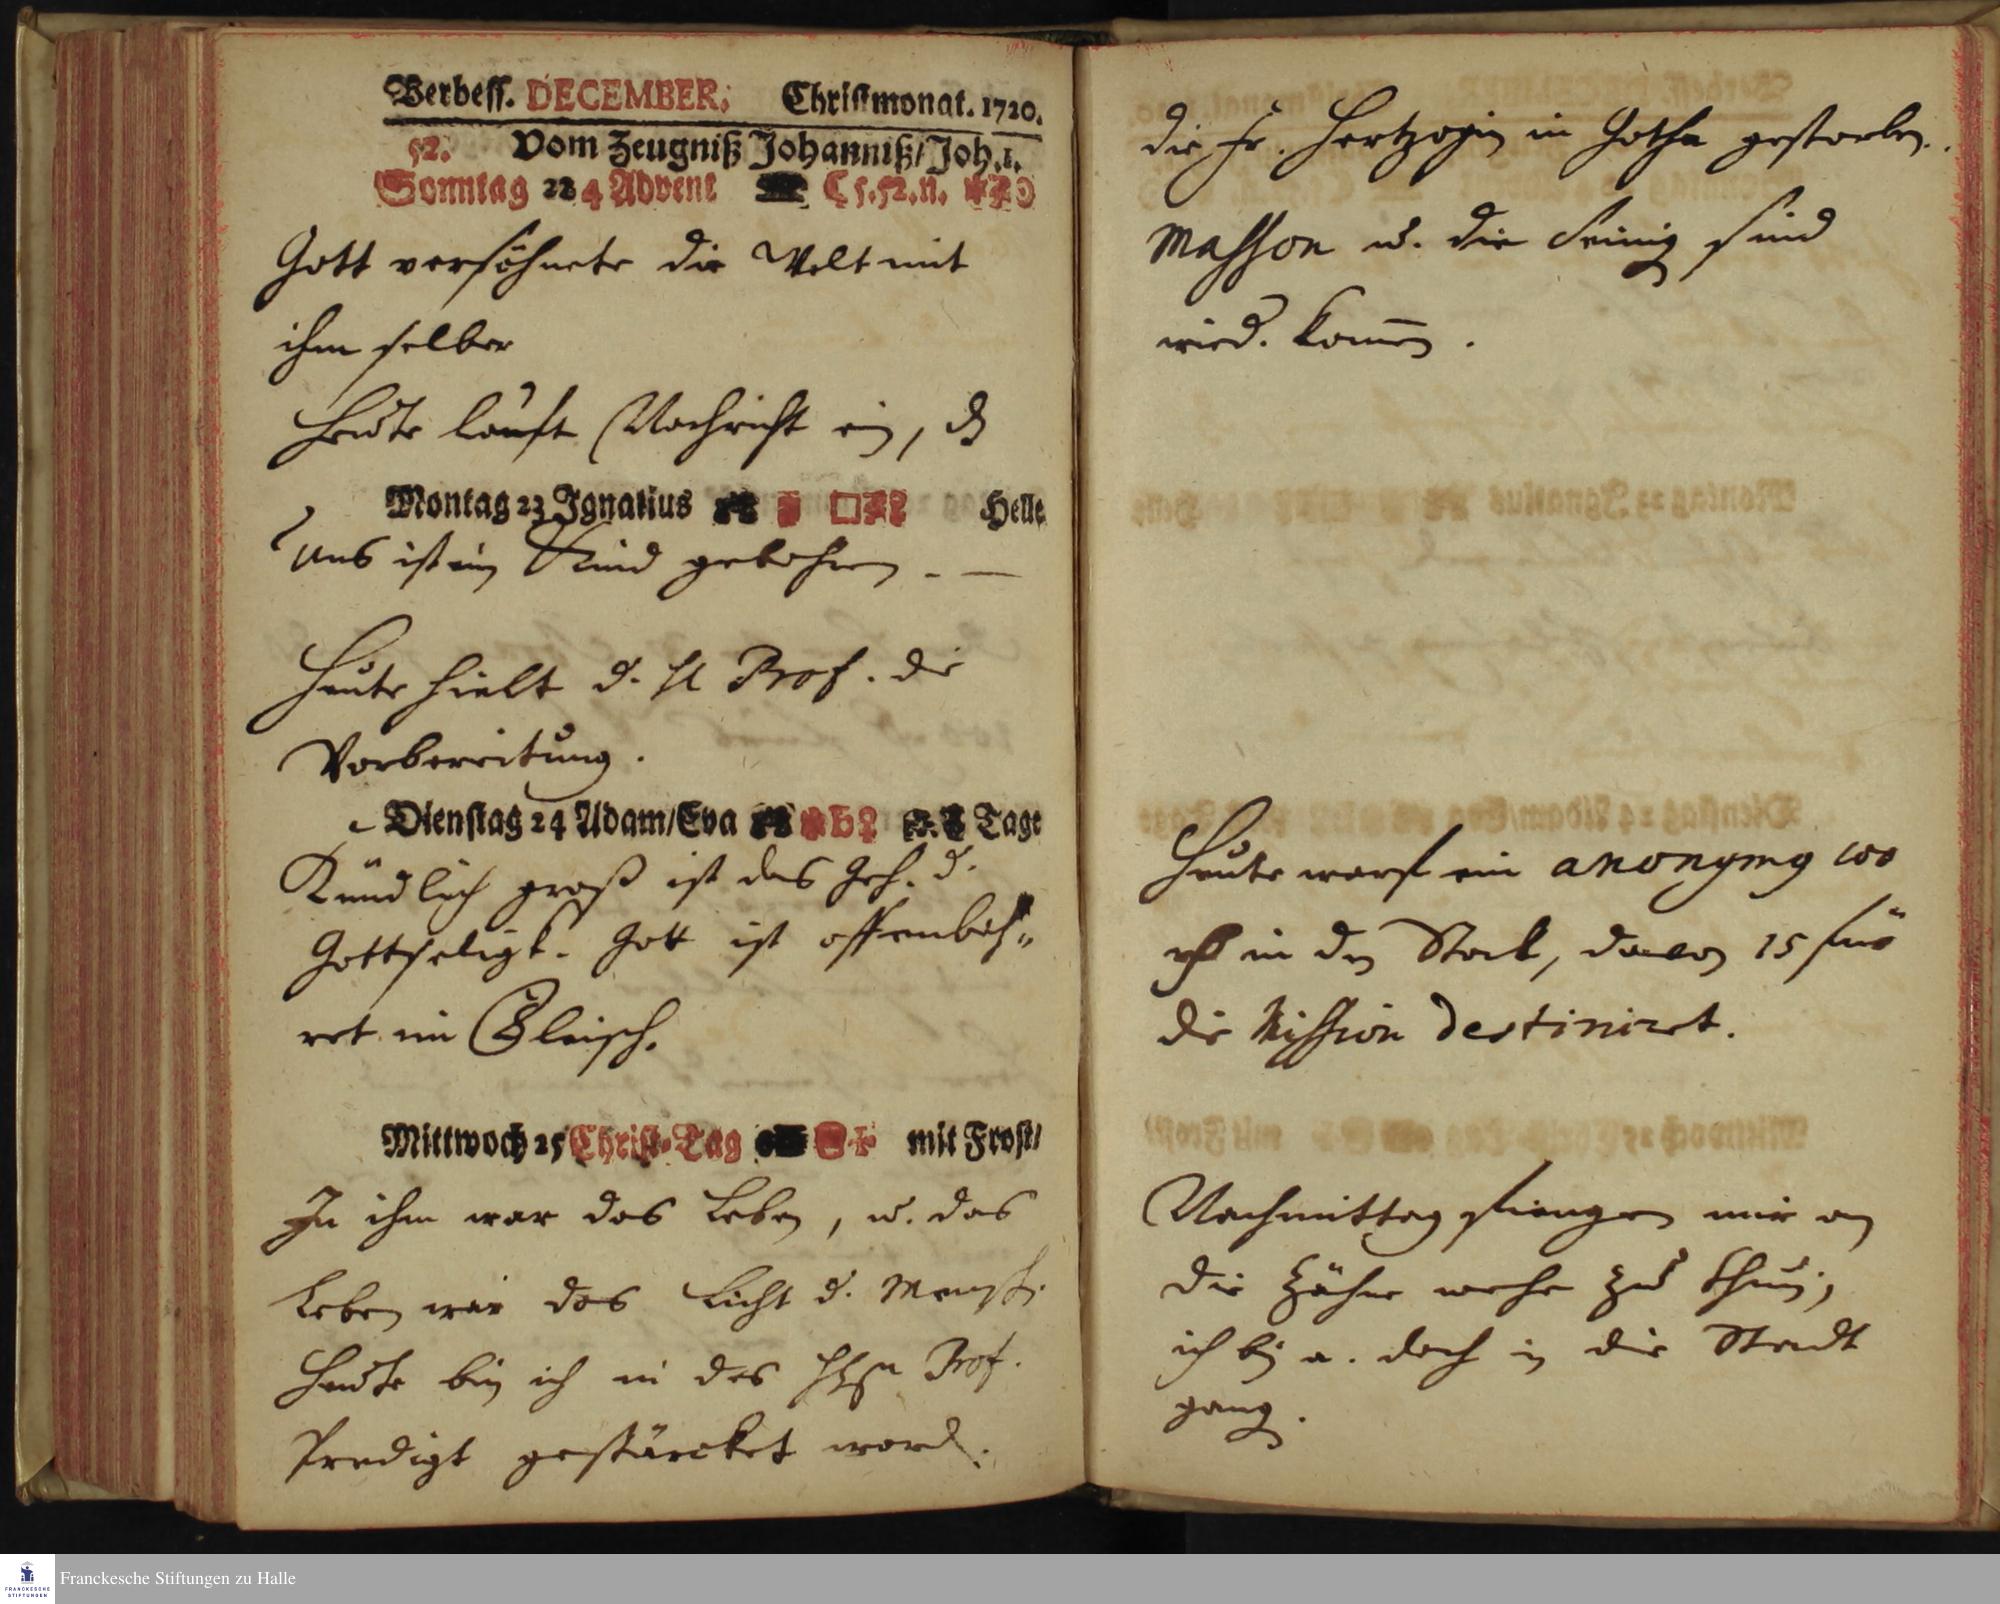 Verbess. DECEMBER. Christmonat. 1720.
52. Vom Zeugniß Johanniß/ Joh. 1.
Sonntag 22 4 Advent ☾ 5. 52. n.
Gott versöhnete die Welt mit
ihm selber
Heute läuft Nachricht ein, dß
Montag 23 Ignatius Helle
Uns ist ein Kind gebohren. —
Heute hielt d. H Prof. die
Vorbereitung.
Dienstag 24 Adam/Eva Tage
Kündlich groß ist das Geh. d.
Gottseligk. Gott ist offenbah-
ret im Fleisch.
Mittwoch 25 Christ-Tag mit Frost/
In ihm war das Leben, u. das
Leben war das Licht d. Mensch.
Heute bin ich in des Prof.
Predigt gestärcket word.
die Fr. Hertzogin in Gotha gestorben.
Masson u. die Seinig sind
wied. kom̄en.
Heute warf ein anonymg 100
in den Stock, davon 15 für
die Mission destiniret.
Nachmittag fiengen mir an
die Zähne wehe zu thun,
ich bin a. doch in die Stadt
gang.
Franckesche Stiftungen zu Halle
FRANCKESCHE
STIFTUNGEN